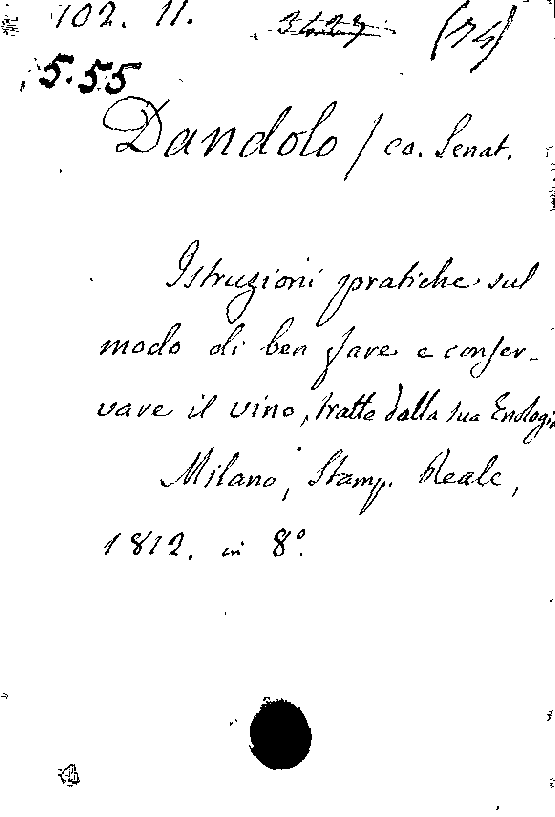 102. 11. (74)
5.55
Dandolo / co. Senat.
Istruzioni pratiche sul
modo di ben fare e conser-
vare il vino, tratte dalla sua Enologia
Milano, Stamp. Reale,
1812. in 8°.